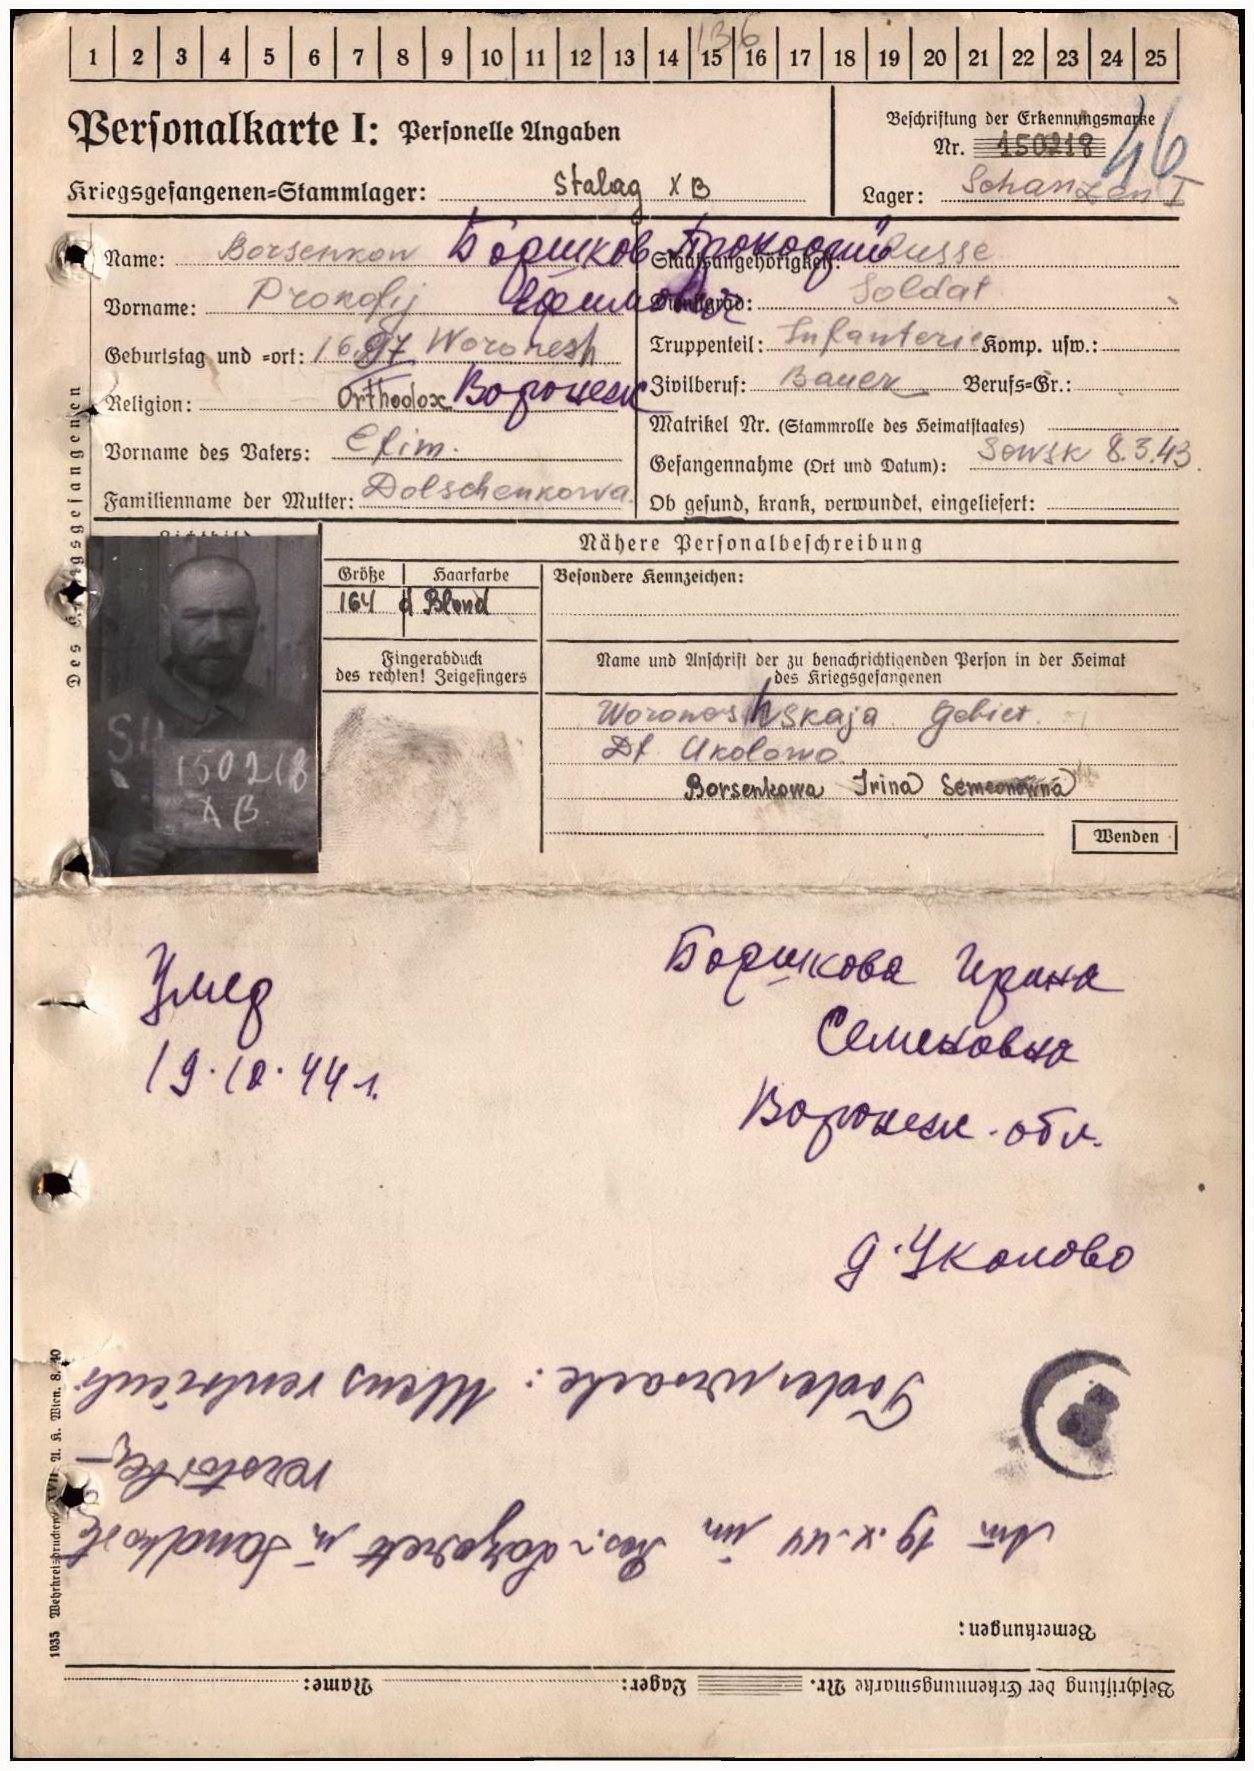 1 2 3 4 5 6 7 8 9 10 11 12 13 14 15 16 17 18 19 20 21 22 23 24 25
136
Personalkarte I: Personelle Angaben
Beschriftung der Erkennungsmarke
Nr. 150218
46
Kriegsgefangenen=Stammlager: Stalag X B
Lager: Schanzen I
Name: Borsenkow Боршков Прокофий
Staatsangehörigkeit: Russe
Vorname: Prokofij Ефимович
Dienstgrad: Soldat
Geburtstag und =ort: 16. 97 Woronesh
Truppenteil: Infanterie Komp. usw.:
Religion: Orthodox Воронеж
Zivilberuf: Bauer Berufs=Gr.:
Matrikel Nr. (Stammrolle des Heimatstaates)
Vorname des Vaters: Efim.
Gefangennahme (Ort und Datum): Sewsk 8.3.43.
Familienname der Mutter: Dolschenkowa
Ob gesund, krank, verwundet, eingeliefert:
Des Kriegsgefangenen
Lichtbild
Nähere Personalbeschreibung
Größe Haarfarbe
Besondere Kennzeichen:
164 d Blond
Fingerabduck
des rechten! Zeigefingers
Name und Anschrift der zu benachrichtigenden Person in der Heimat
des Kriegsgefangenen
Woroneshskaja Gebiet.
Df. Ukolowo
Borsenkowa Irina Semeonowna
150218
X B
Wenden
Умер
19.10.44 г.
Боршкова Ирина
Семеновна
Воронеж. обл.
д. Уколово
Todesursache: Ulcus ventriculi
verstorben
Am 19.X.44 im Res.-Lazarett in Sandbostel
Bemerkungen:
Beschriftung der Erkennungsmarke Nr. Lager: Name:
1035 Wehrkreisdruckerei XVII A. K. Wien. 8. 40